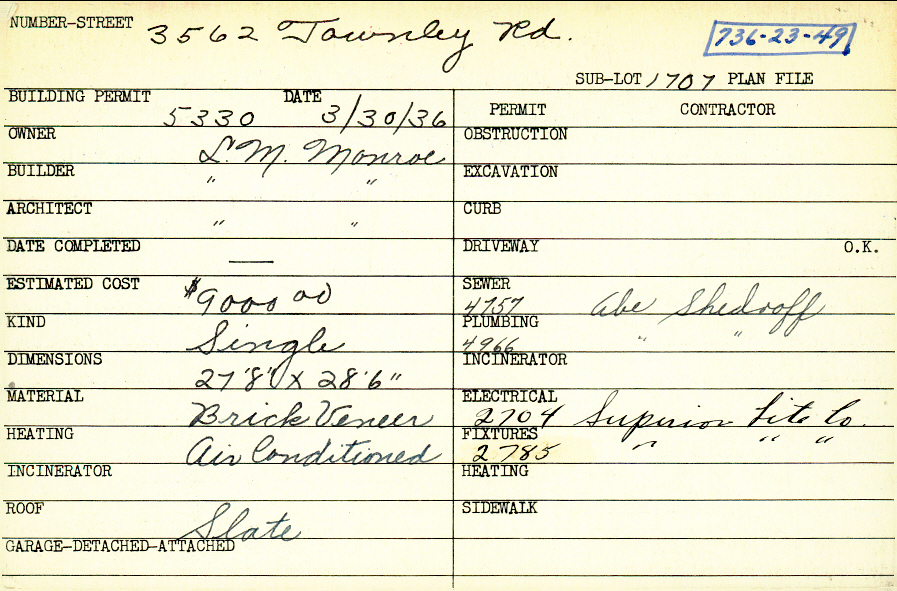 NUMBER-STREET 3562 Townley Rd. 736-23-49
SUB-LOT 1707 PLAN FILE
BUILDING PERMIT 5330 DATE 3/30/36 PERMIT CONTRACTOR
OWNER L. M. Monroe OBSTRUCTION
BUILDER " " EXCAVATION
ARCHITECT " " CURB
DATE COMPLETED — DRIVEWAY O.K.
ESTIMATED COST $9000 00 SEWER 4757 Abe Shedroff
KIND Single PLUMBING 4966 " "
DIMENSIONS 27'8" X 28'6" INCINERATOR
MATERIAL Brick Veneer ELECTRICAL 2704 Superior Lite Co.
HEATING Air Conditioned FIXTURES 2785 " " "
INCINERATOR HEATING
ROOF Slate SIDEWALK
GARAGE-DETACHED-ATTACHED